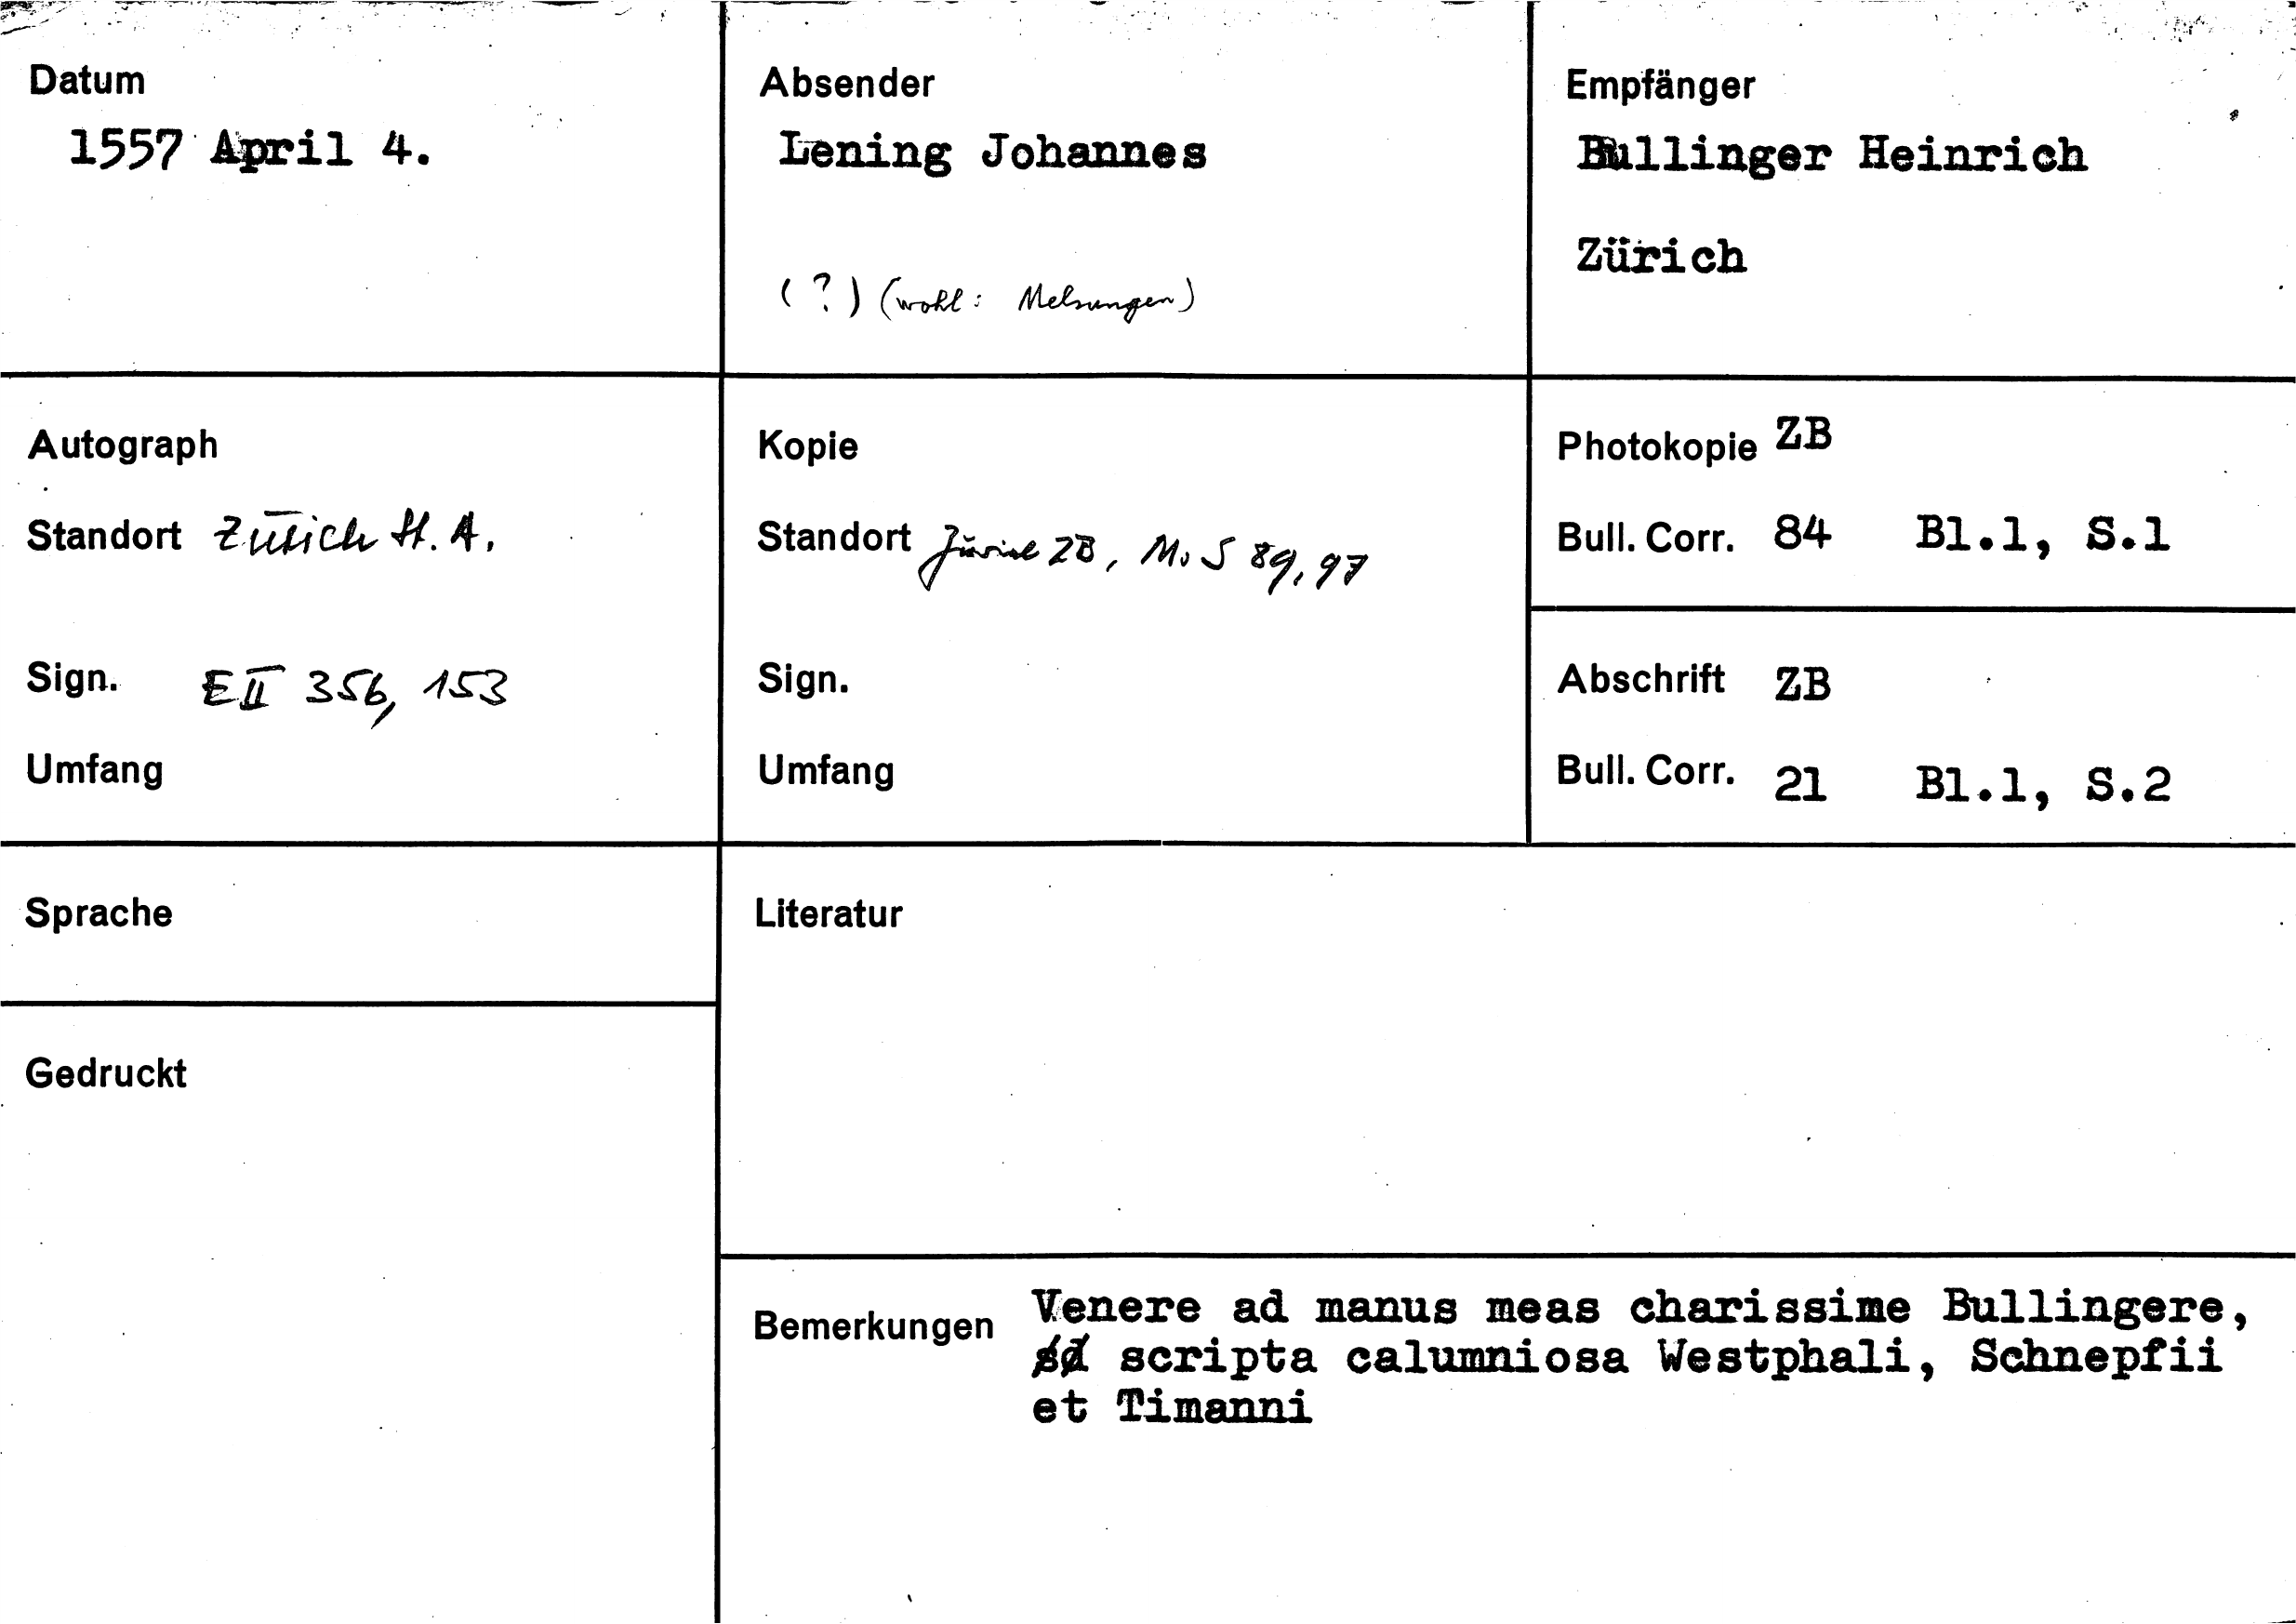 Datum
1557 April 4.
Absender
Lening Johannes
(?) (wohl: Melsungen)
Empfänger
Bullinger Heinrich
Zürich
Autograph
Standort Zürich St. A.
Sign. E II 356, 153
Umfang
Kopie
Standort Zürich ZB, Ms S 89, 97
Sign.
Umfang
Photokopie ZB
Bull. Corr. 84 Bl.1, S.1
Abschrift ZB
Bull. Corr. 21 Bl.1, S.2
Sprache
Gedruckt
Literatur
Bemerkungen Venere ad manus meas charissime Bullingere,
scripta calumniosa Westphali, Schnepfii
et Timanni